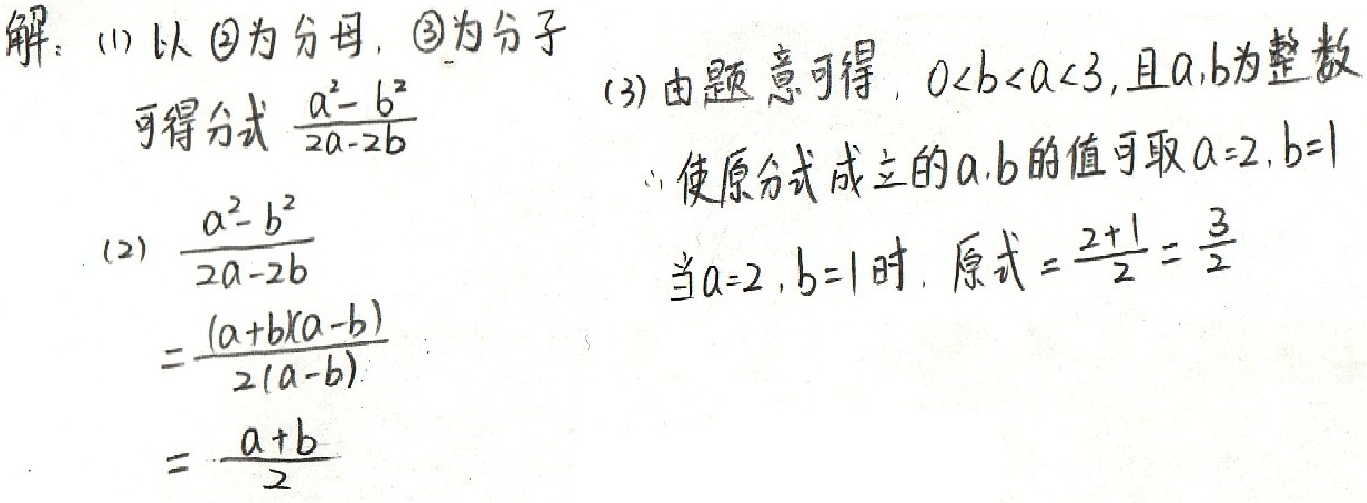 解：(1) 以②为分母，③为分子
可得分式 \frac{a²-b²}{2a-2b}
(2) \frac{a²-b²}{2a-2b}
= \frac{(a+b)(a-b)}{2(a-b)}
= \frac{a+b}{2}
(3) 由题意可得，0<b<a<3，且a,b为整数
∴使原分式成立的a,b的值可取a=2,b=1
当a=2,b=1时，原式=\frac{2+1}{2}=\frac{3}{2}